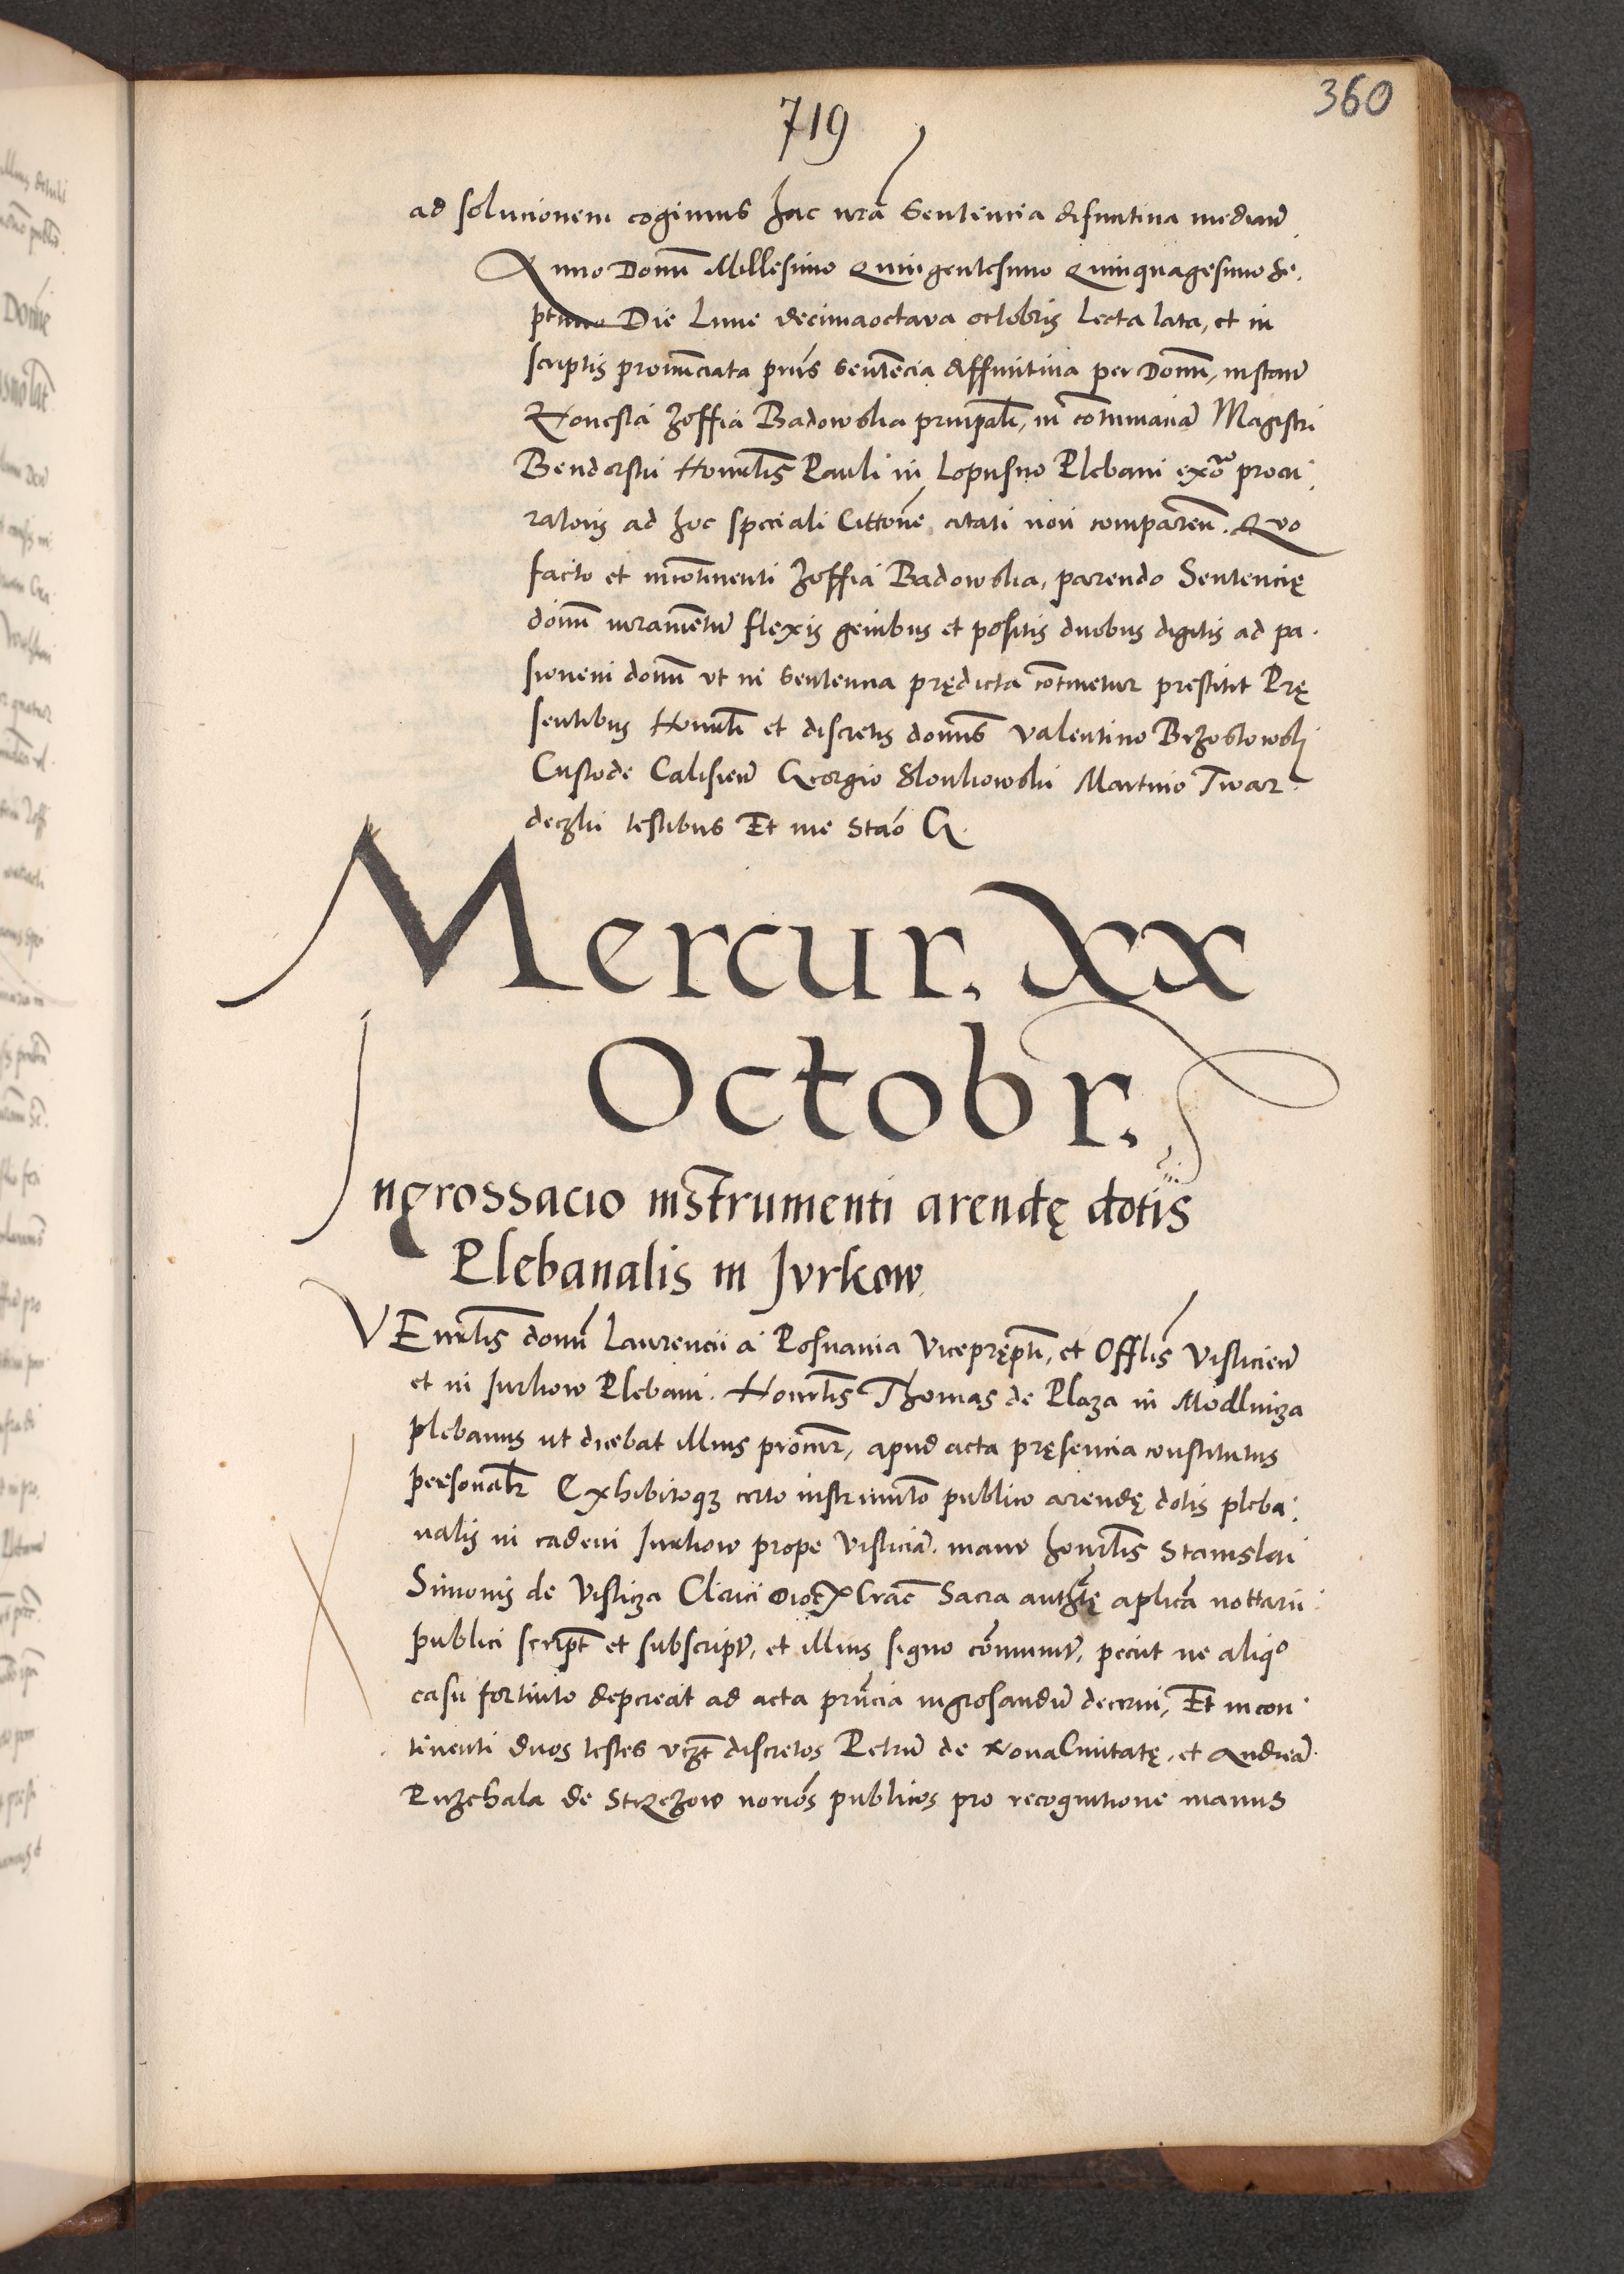 360
719
ad solucionem cogimus hac nrã Sentencia difinitiua median̄
Anno Domi Millesimo Quingentesimo Quinquagesimo Se,
ptimo Die Lune decimaoctava octobris Lecta lata, et in
scriptis pronunciata pñs Sentẽcia diffinitiua per Domi, instan̄
Honesta Zoffia Badowska principali, in cõtumaciã Magistri
Bendorski Honorlis Pauli in Lopusno Plebani procu,
ratoris ad hoc speciali Cittõne citati non comparen̄. Quo
facto et incõtinenti Zoffia Badowska, parendo Sentencię
domi iuramentũ flexis genibus et positis duobus digitis ad pa,
sionem domi vt in Sentencia prędicta cõtinetur prestitit Prę
sentibus Honorli et discretis domis Valentino Brzostowski
Custode Calisien̄ Georgio Slonkowski Martino Twar,
deczki testibus Et me Stao G.
Mercur. xx
Octobr.
Ingrossacio instrumenti arendę dotis
Plebanalis in Jvrkow
VEnerlis domi Laurencii a Posnania Viceprępti, et Offlis Vislicien̄
et in Jurkow Plebani. Honorlis Thomas de Plaza in Modlnicza
plebanus ut dicebat illius procur, apud acta pręsencia constitutus
personalr Exhibitoqȝ certo instrumto publico arendę dotis pleba,
nalis in eadem Jurkow prope Visliciã. manu honorlis Stanislai
Simonis de Vislicza Clerici Dioc Crac Sacra authte aplica nottarii
publici script et subscript, et illius signo cõmunit, peciit ne aliqo
casu fortuito depereat ad acta pñcia ingrosandũ decerni, Et incon,
tinenti duos testes vczt discretos Petrũ de NouaCiuitatę, et Andreã
Przechala de Strzezow noriõs publicos pro recognitione manus